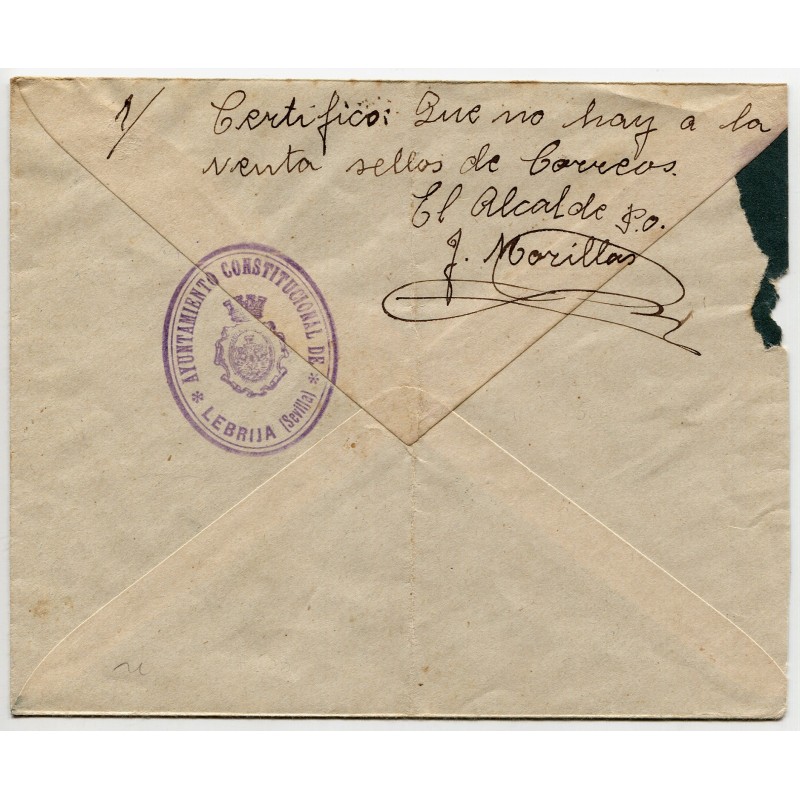 1/ Certifico: Que no hay a la
venta sellos de Correos.
El Alcalde P.O.
J. Morillas
* AYUNTAMIENTO CONSTITUCIONAL DE *
LEBRIJA (Sevilla)